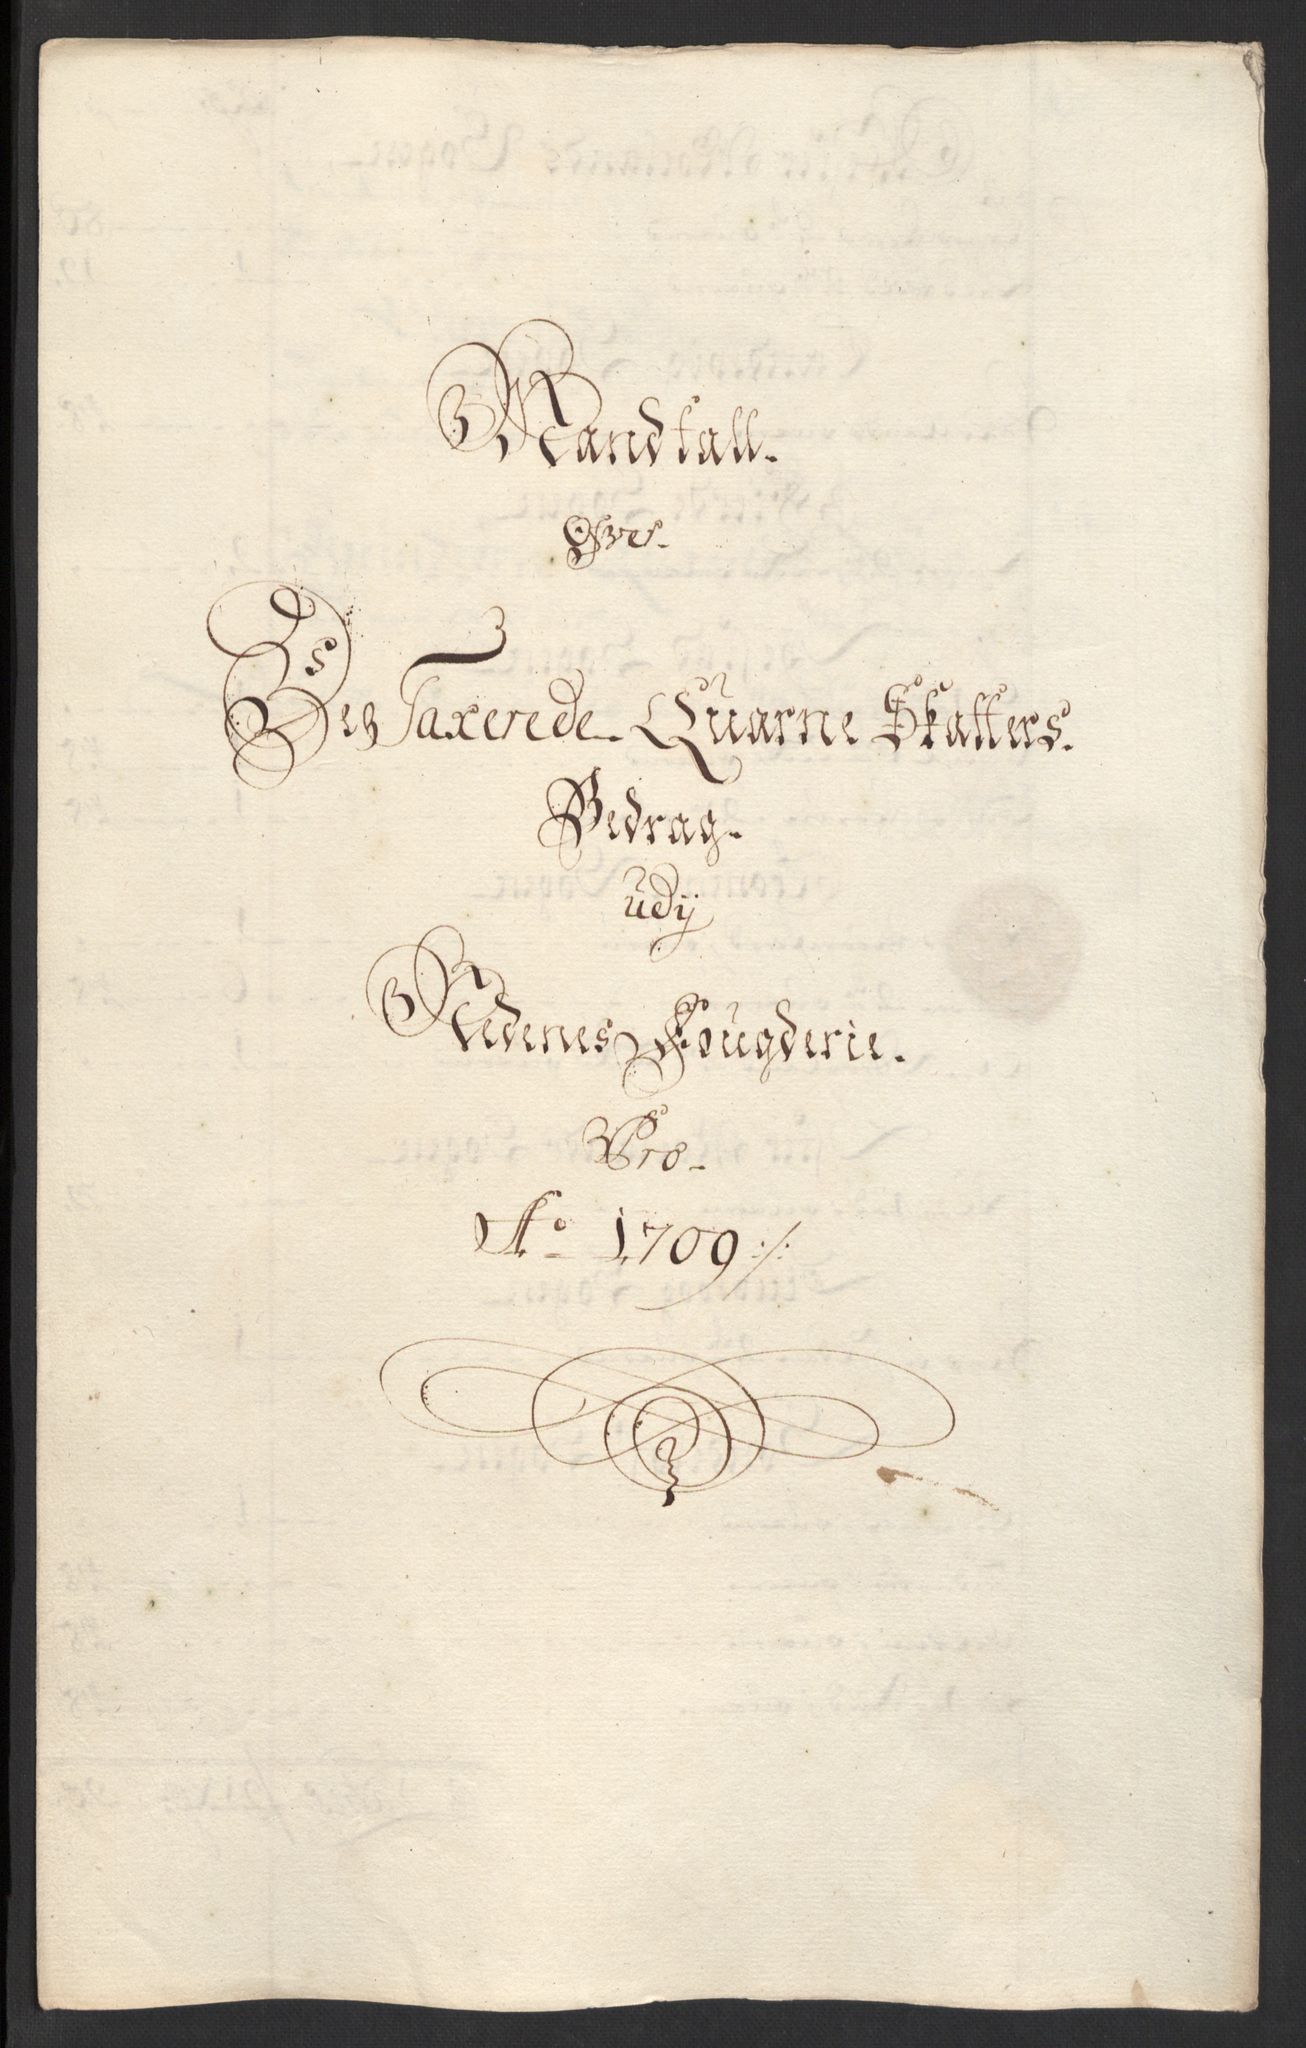 Mandtall.
Over.
Den Taxerede Quarne Skatters.
Bedrag.
udÿ
Nedenes Fougderie.
Pro.
Ao 1709 ./.